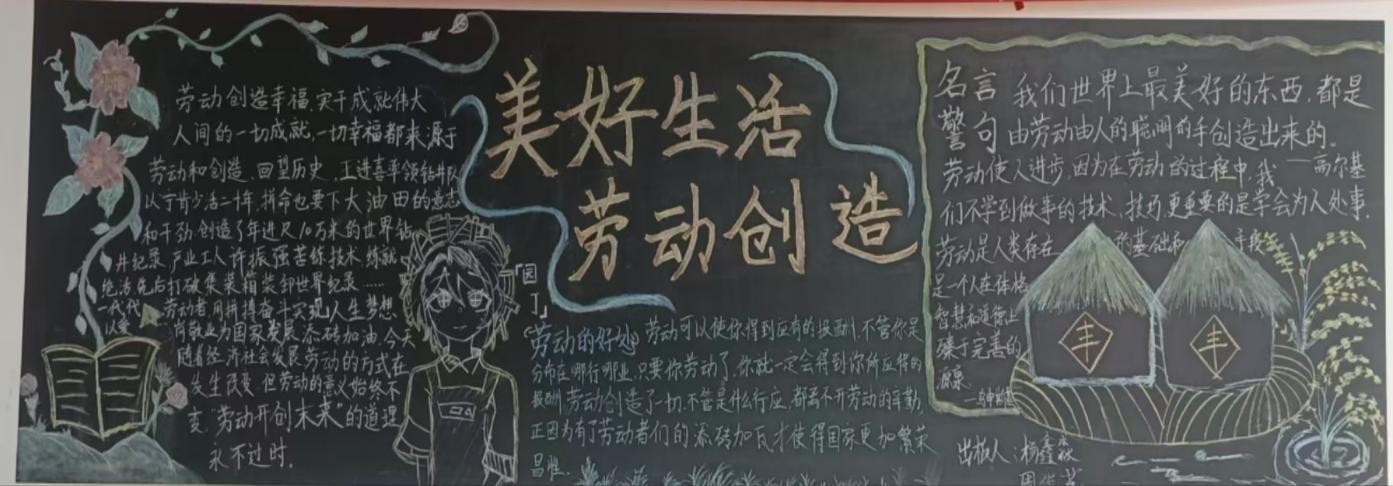 劳动创造幸福,实干成就伟大
人间的一切成就,一切幸福都来源于
劳动和创造.回望历史.王进喜率领钻井队
以宁肯少活二十年,拼命也要下大油田的意志
和干劲创造了年进尺10万米的世界钻
井纪录.产业工人许振强苦练技术,练就
绝活先后打破集装箱装卸世界纪录……
一代代劳动者用拼搏奋斗实现人生梦想
以爱岗敬业为国家发展添砖加油.今天
随着经济社会发展劳动的方式在
发生改变.但劳动的意义始终不
变,“劳动开创未来”的道理
永不过时.
美好生活
劳动创造
园
丁
劳动的好妙 劳动可以使你得到应有的报酬!不管你是
分布在哪行哪业,只要你劳动了,你就一定会得到你所应得的
报酬,劳动创造了一切.不管是什么行应,都离不开劳动的辛勤,
正因为有了劳动者们的添砖加瓦才使得国家更加繁荣
昌
名言 我们世界上最美好的东西,都是
警句 由劳动由人的聪明的手创造出来的.
——高尔基
劳动使人进步,因为在劳动的过程中,我
们不学到做事的技术,技巧,更重要的是学会为人处事.
劳动是人类存在的基础和手段
是一个人在体格
智慧和道德上
臻于完善的
源泉
丰
丰
出板人:杨鑫焱
周